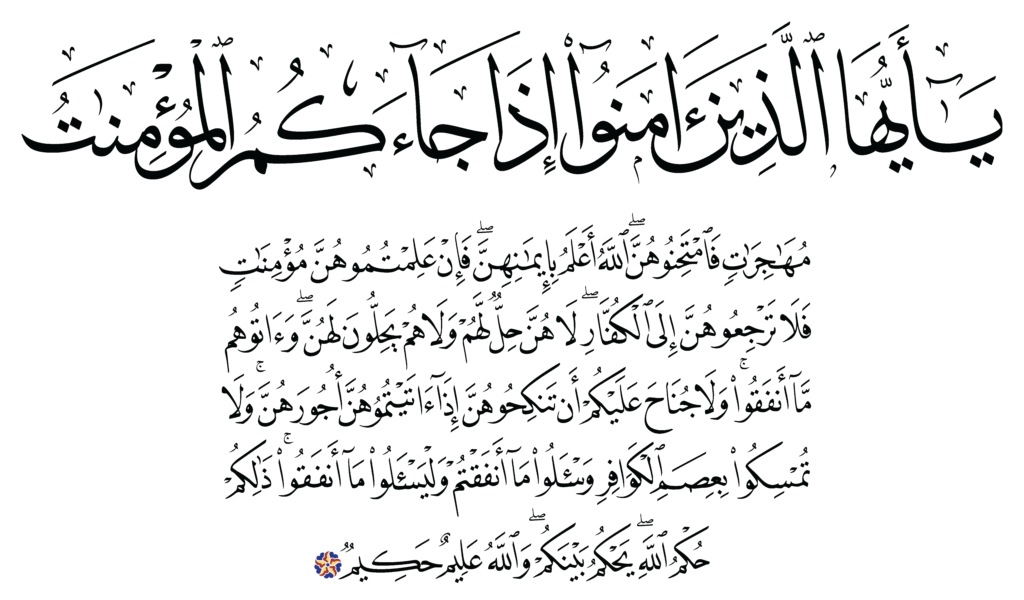 يَـٰٓأَيُّهَا ٱلَّذِينَ ءَامَنُوٓا۟ إِذَا جَآءَكُمُ ٱلْمُؤْمِنَـٰتُ
مُهَـٰجِرَٰتٍ فَٱمْتَحِنُوهُنَّ ۖ ٱللَّهُ أَعْلَمُ بِإِيمَـٰنِهِنَّ ۖ فَإِنْ عَلِمْتُمُوهُنَّ مُؤْمِنَـٰتٍ
فَلَا تَرْجِعُوهُنَّ إِلَى ٱلْكُفَّارِ ۖ لَا هُنَّ حِلٌّ لَّهُمْ وَلَا هُمْ يَحِلُّونَ لَهُنَّ ۖ وَءَاتُوهُم
مَّآ أَنفَقُوا۟ ۚ وَلَا جُنَاحَ عَلَيْكُمْ أَن تَنكِحُوهُنَّ إِذَآ ءَاتَيْتُمُوهُنَّ أُجُورَهُنَّ ۚ وَلَا
تُمْسِكُوا۟ بِعِصَمِ ٱلْكَوَافِرِ وَسْـَٔلُوا۟ مَآ أَنفَقْتُمْ وَلْيَسْـَٔلُوا۟ مَآ أَنفَقُوا۟ ۚ ذَٰلِكُمْ
حُكْمُ ٱللَّهِ ۖ يَحْكُمُ بَيْنَكُمْ ۖ وَٱللَّهُ عَلِيمٌ حَكِيمٌ